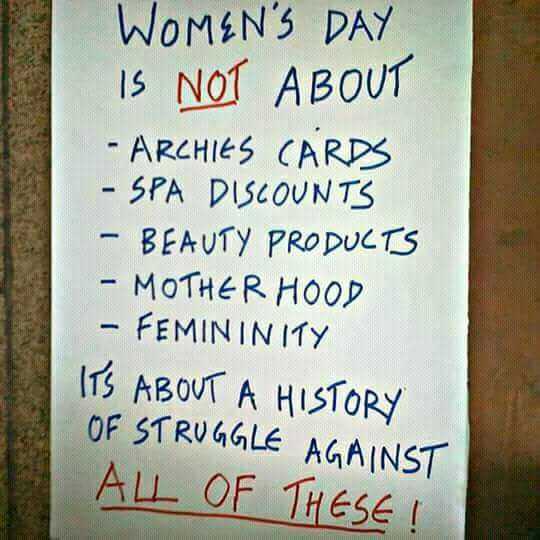 WOMEN'S DAY
IS NOT ABOUT
- ARCHIES CARDS
- SPA DISCOUNTS
- BEAUTY PRODUCTS
- MOTHERHOOD
- FEMININITY
ITS ABOUT A HISTORY
OF STRUGGLE AGAINST
ALL OF THESE!